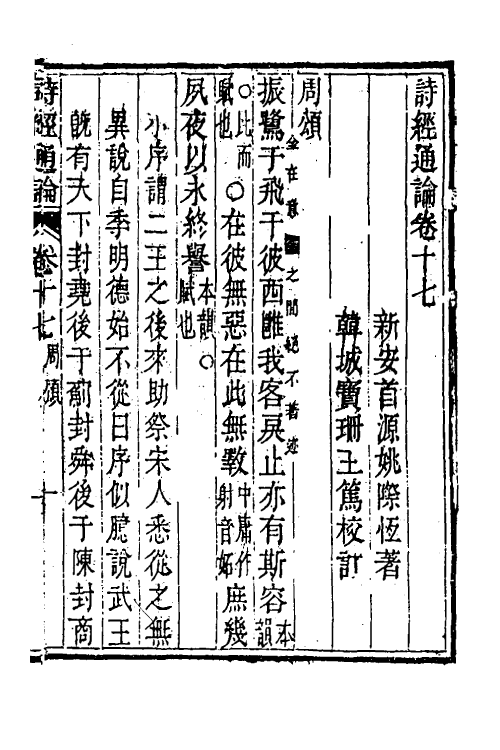 詩經通論卷十七
新安首源姚際恆著
韓城寶珊王篤校訂
周頌
全在意之間絕不著迹
振鷺于飛于彼西雝我客戾止亦有斯容本韻
○比而賦也○在彼無惡在此無斁中庸作射音妬庶幾
夙夜以永終譽本韻○賦也
小序謂二王之後來助祭宋人悉從之無
異說自季明德始不從曰序似臆說武王
既有天下封堯後于薊封舜後于陳封商
詩經通論 卷十七 周頌 十